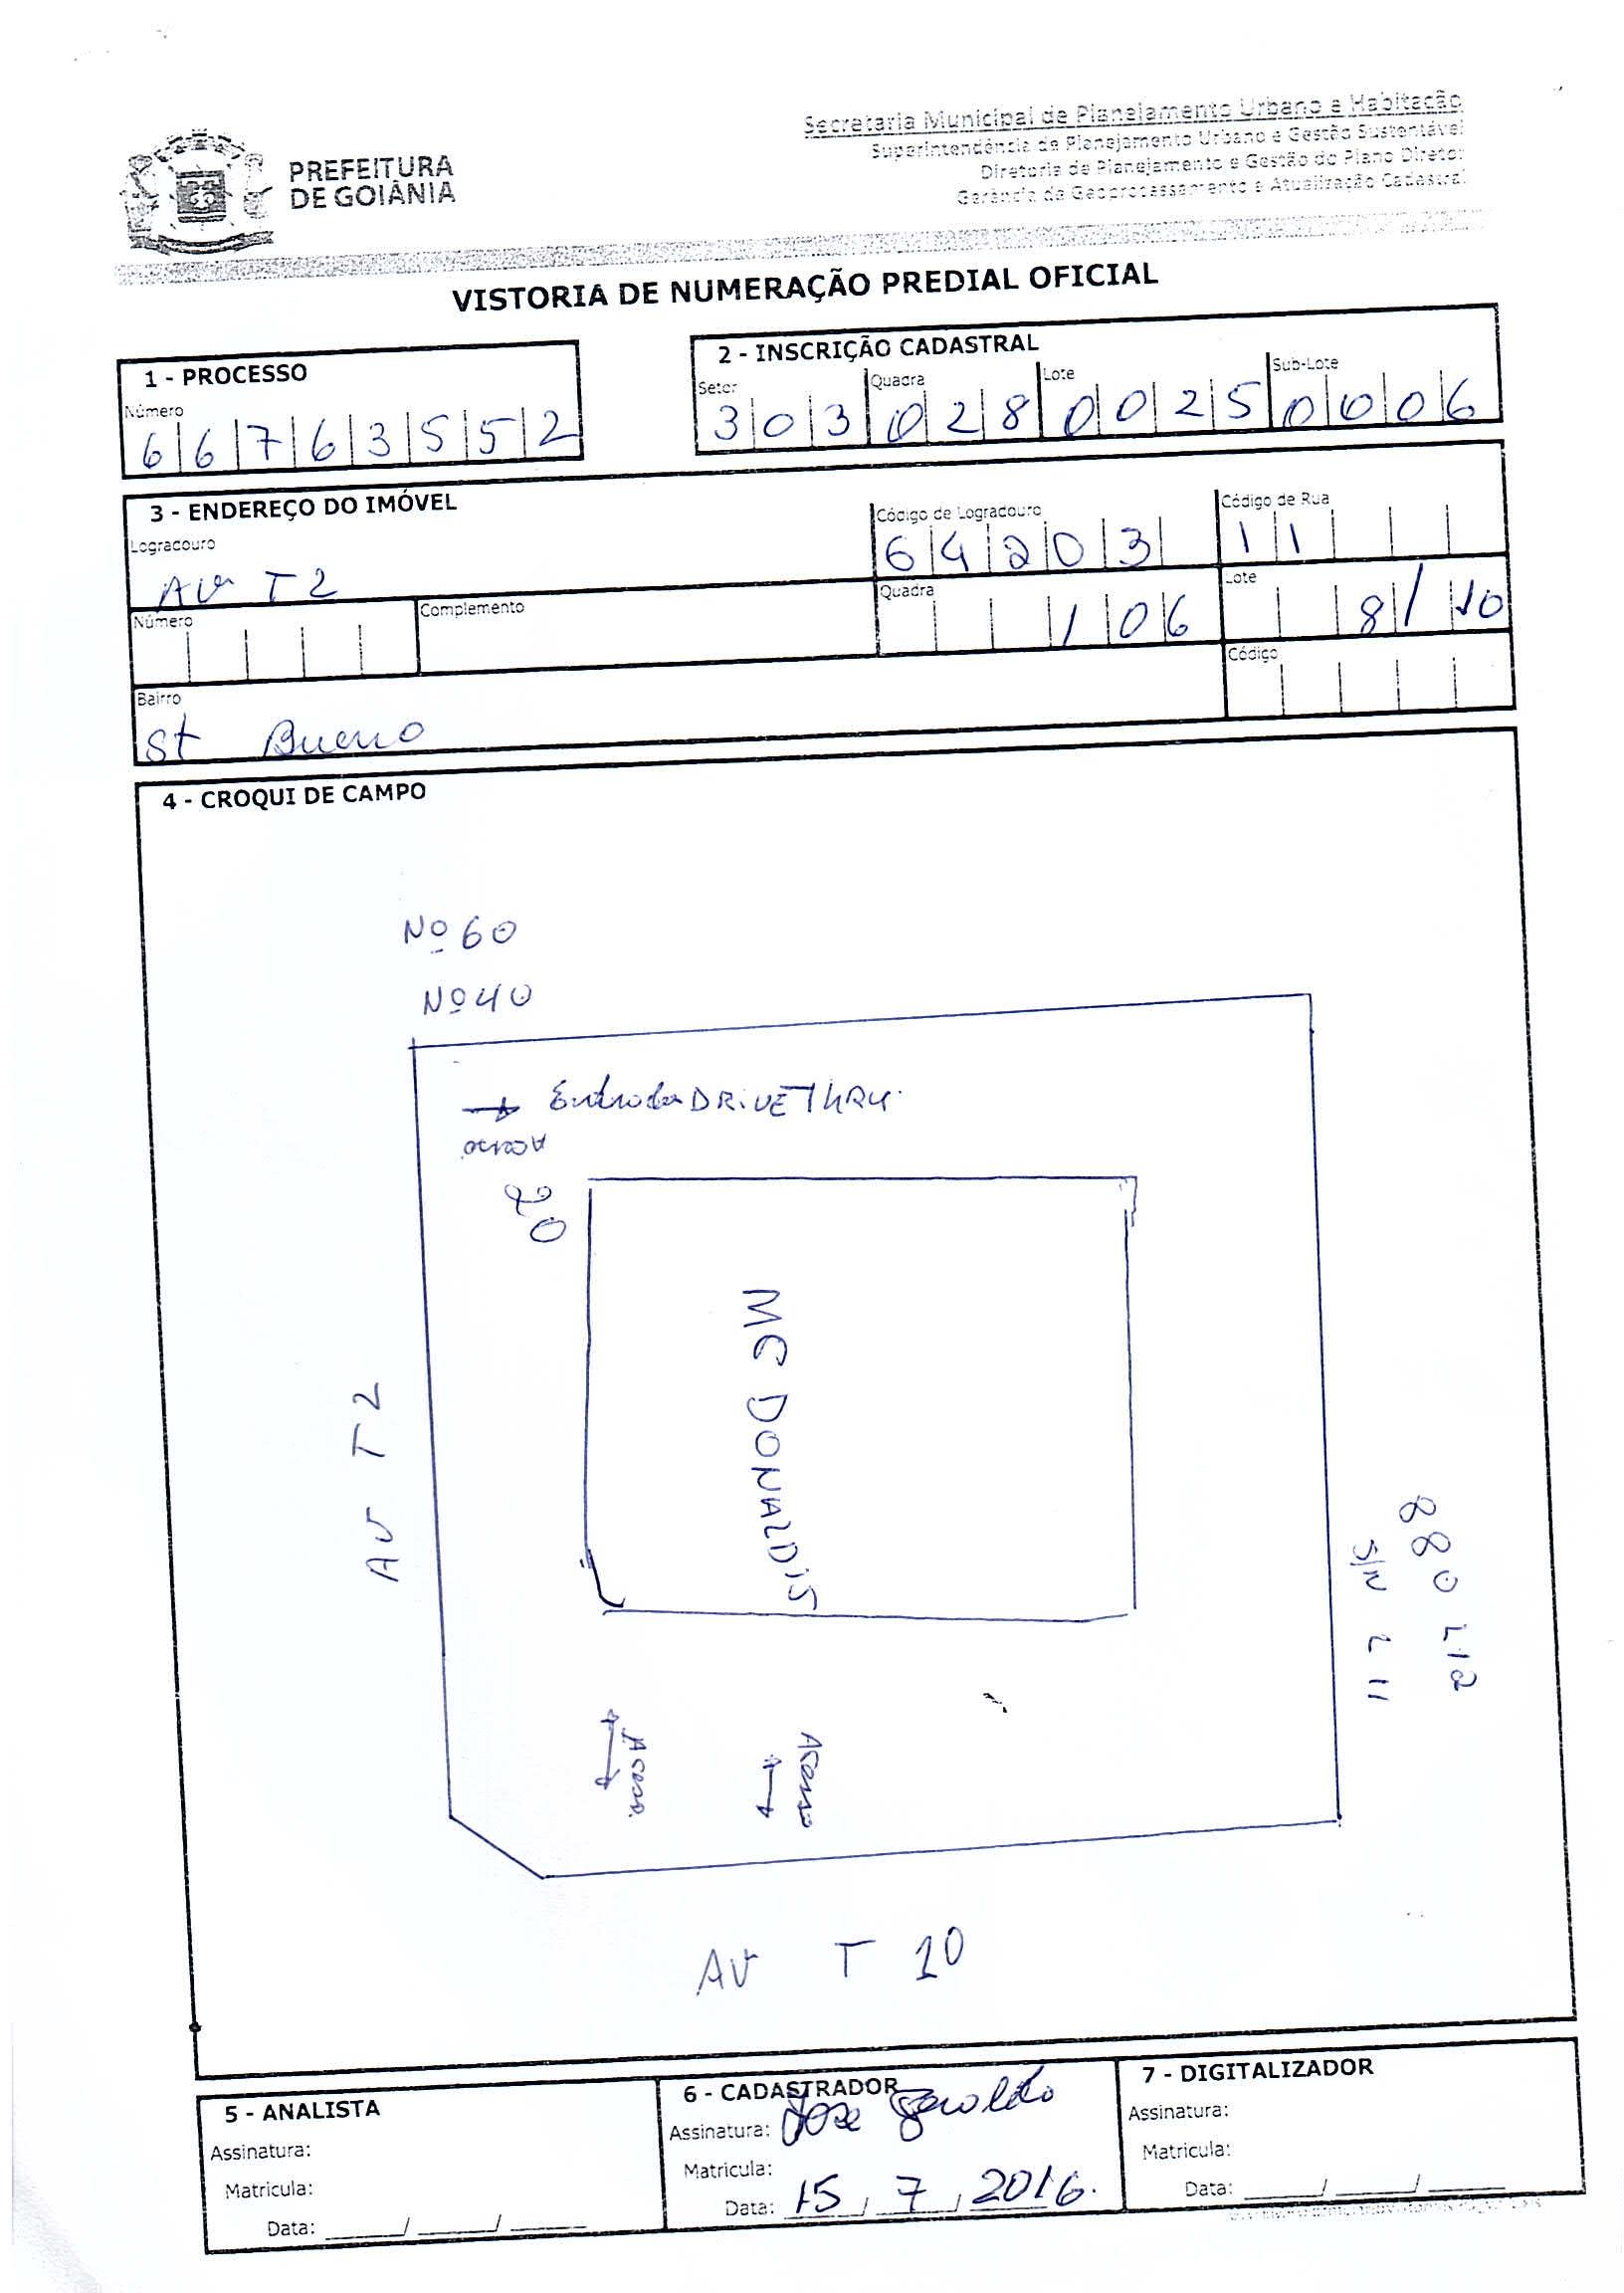 Secretaria Municipal de Planejamento Urbano e Habitação
Superintendência de Planejamento Urbano e Gestão Sustentável
Diretoria de Planejamento e Gestão do Plano Diretor
Gerência de Geoprocessamento e Atualização Cadastral
PREFEITURA
DE GOIÂNIA
VISTORIA DE NUMERAÇÃO PREDIAL OFICIAL
1 - PROCESSO
Número
66763552
2 - INSCRIÇÃO CADASTRAL
Setor Quadra Lote Sub-Lote
303 028 0025 0006
3 - ENDEREÇO DO IMÓVEL
Logradouro Código de Logradouro Código de Rua
Av T2 64203 11
Número Complemento Quadra Lote
106 8/10
Bairro Código
St Bueno
4 - CROQUI DE CAMPO
Nº 60
Nº 40
Entrada DRIVE THRU
Acesso
20
MC DONALDIS
AV T2
880 L12
S/N L 11
Acesso
Acesso
AV T 10
5 - ANALISTA
Assinatura:
Matricula:
Data: ____/____/____
6 - CADASTRADOR
Assinatura: Jose Geraldo
Matricula:
Data: 15/7/2016.
7 - DIGITALIZADOR
Assinatura:
Matricula:
Data: ____/____/____